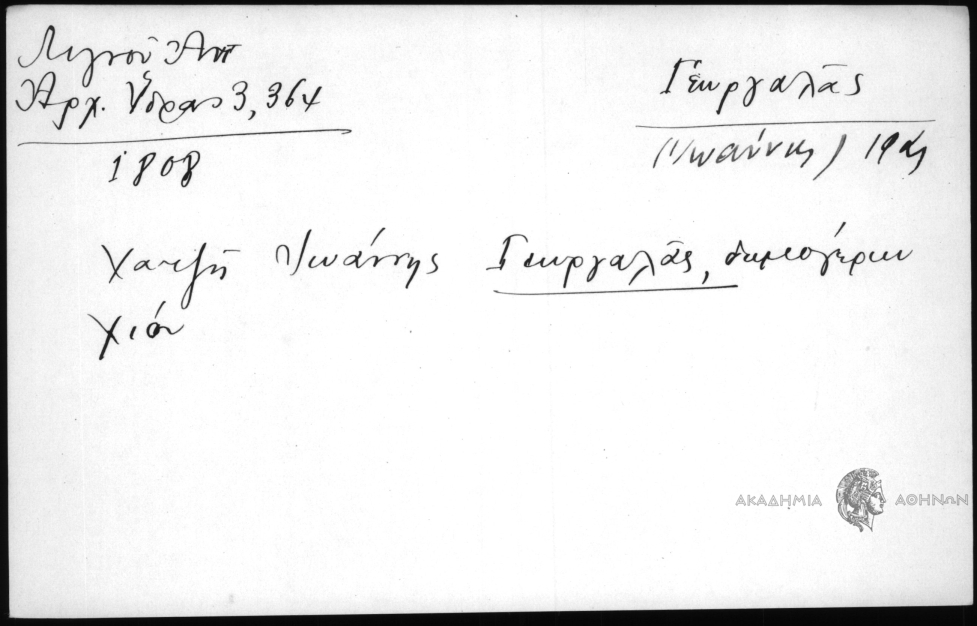 Λιγνοῦ Ἀντ
Ἀρχ. Ὕδρας 3, 364
1808
Γεωργαλᾶς
(Ἰωάννης) 19ος
Χατζῆ Ἰωάννης Γεωργαλᾶς, δημογέρων
Χιόν
ΑΚΑΔΗΜΙΑ ΑΘΗΝΩΝ